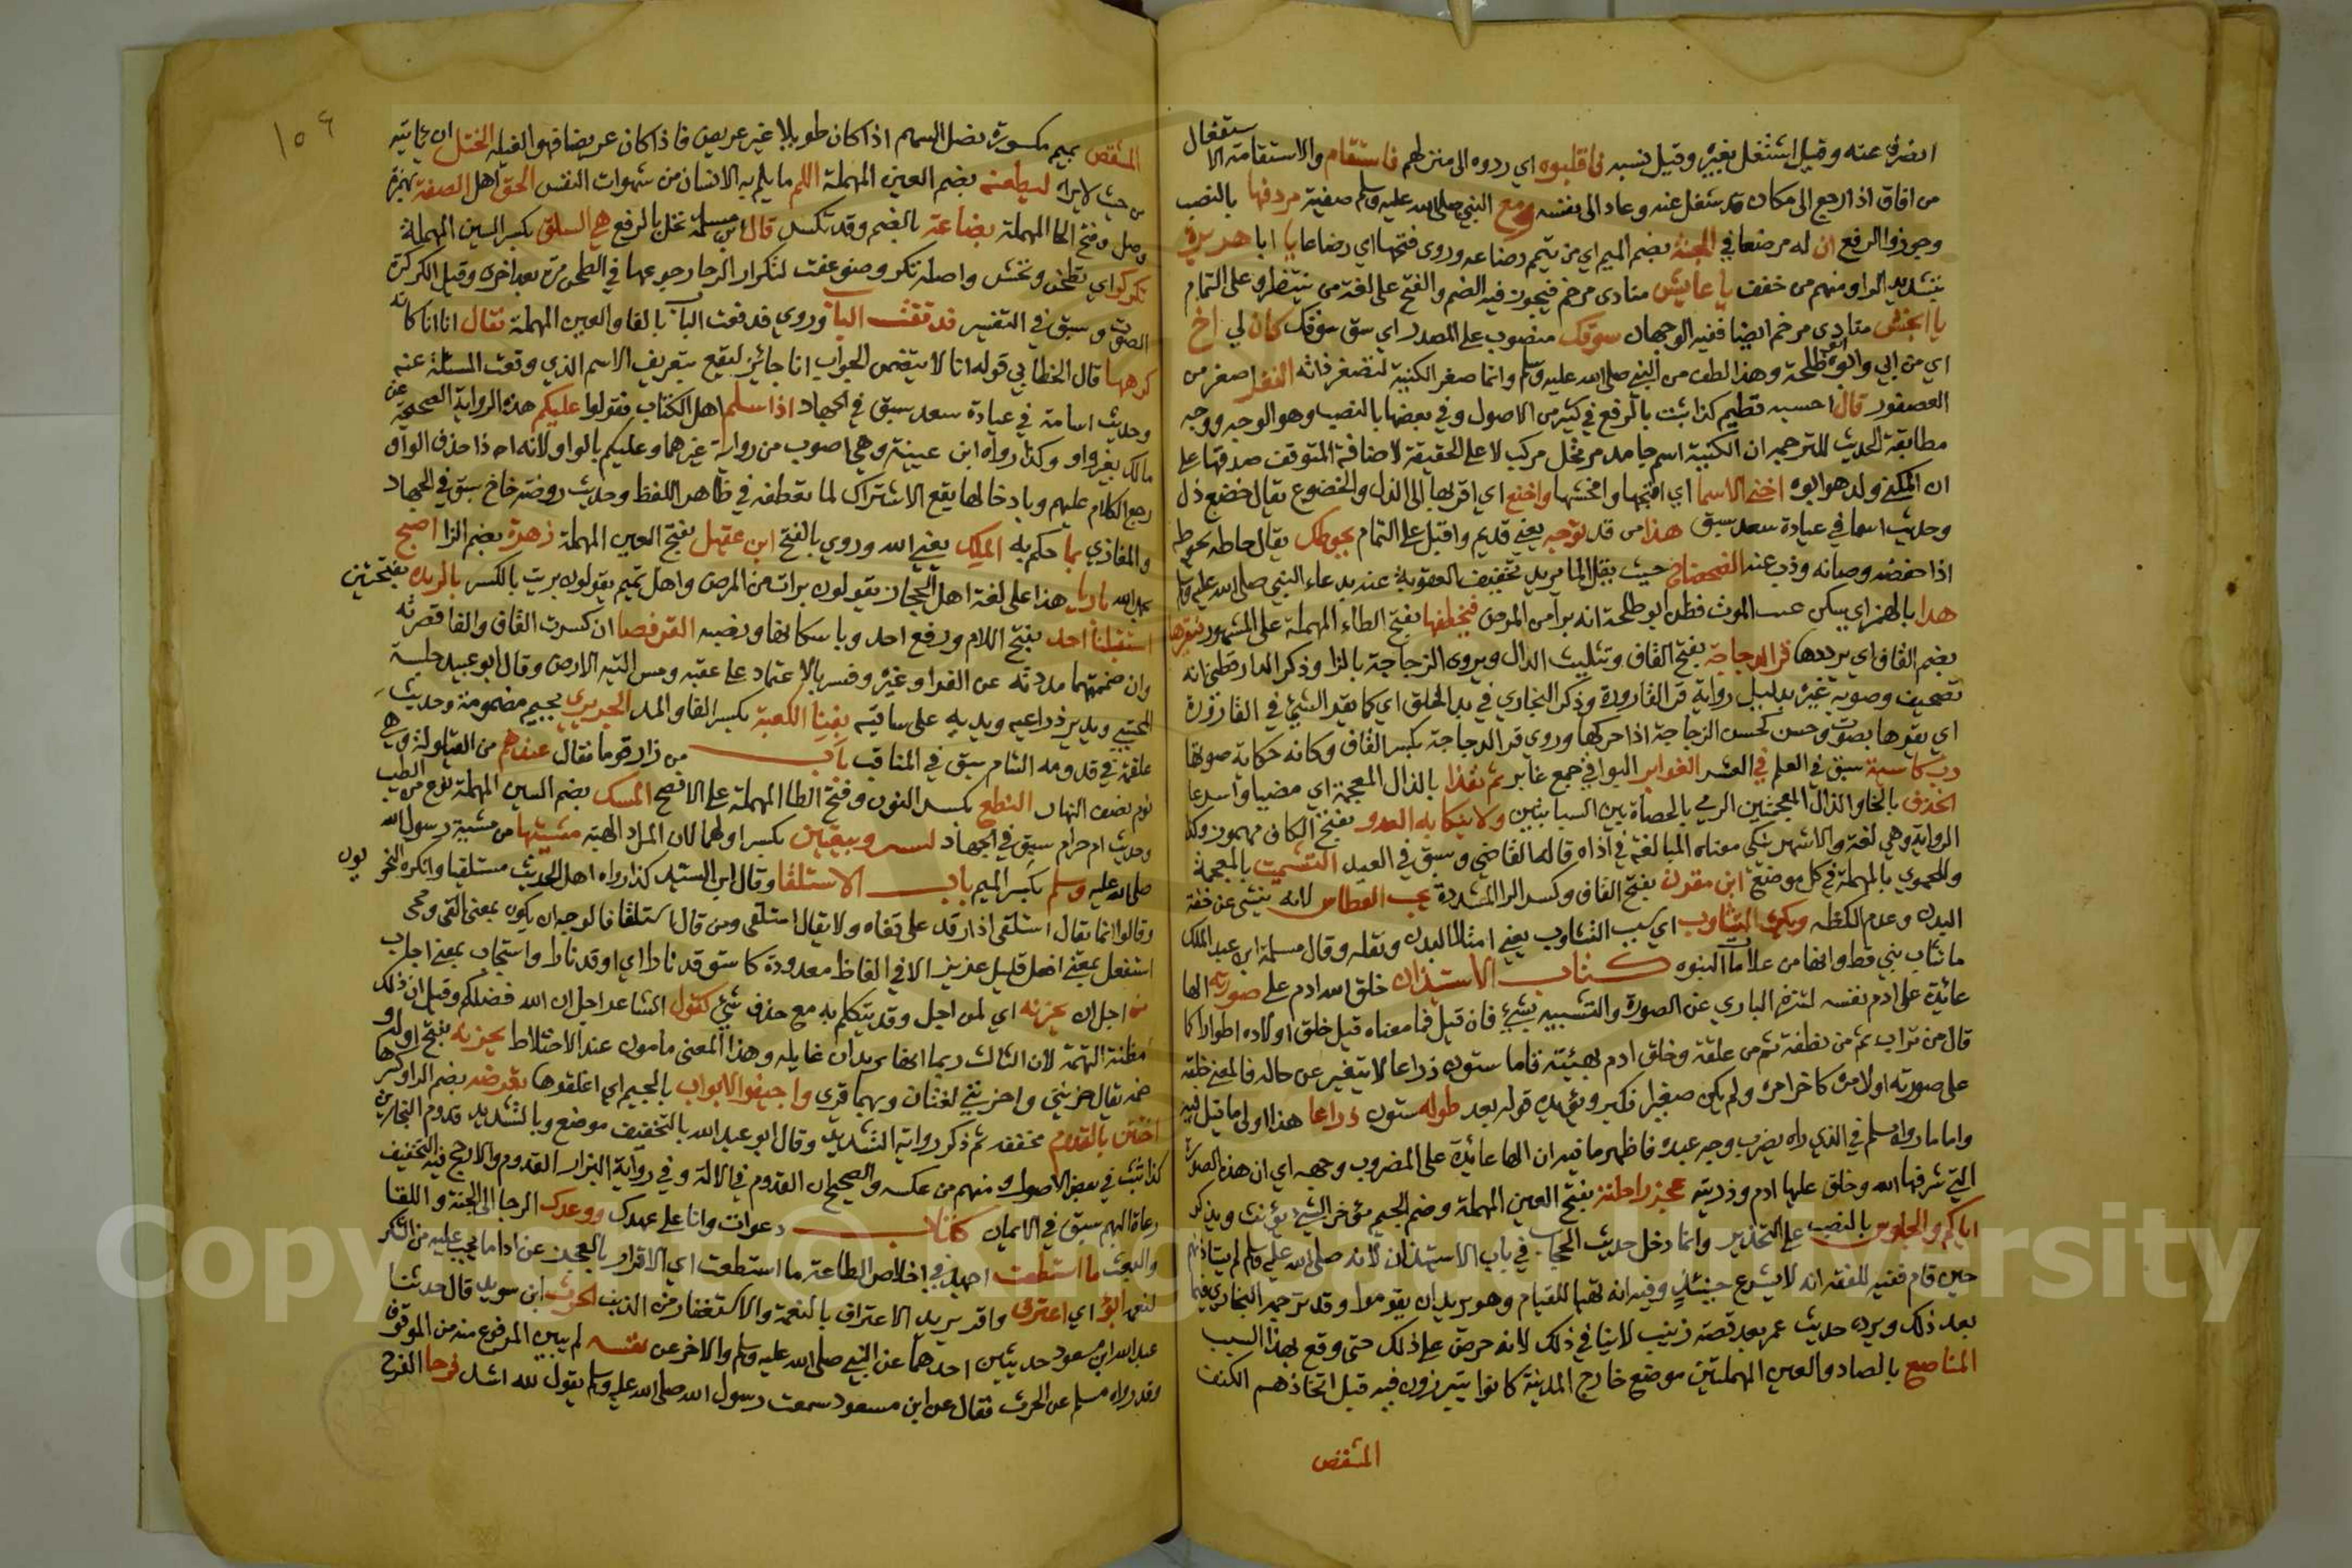 انصرف عنه وقيل اشتغل بغيره وقيل نسيه فاقلبوه اي ردوه الى منزلهم فاستقام والاستقامة الا ستفعال
من افاق اذا رجع الى مكان شغل عنه وعاد الى نفسه ومع النبي صلى الله عليه وسلم صفية مردفها بالنصب
وجوزوا الرفع ان له مرضعا في الجنة بضم الميم اي من يتم رضاعه وروى فتحها اي رضاعا يا ابا هريرة
بتشديد الراو منهم من خفف يا عايش منادى مرخم فيجوز فيه الضم والفتح على لغة من ينتظر وعلى التمام
يا انجش منادى مرخم ايضا ففيه الوجهان سوقك منصوب على المصدر اي سق سوقك كان لي اخ
اي من ابي وابوه ابو طلحة وهذا لطف من النبي صلى الله عليه وسلم وانما صغر الكنية لتصغر ذاته النغر اصغر من
العصفور قال احسبه فطيم كذا ثبت بالرفع في كثير من الاصول وفي بعضها بالنصب وهو الوجه ووجه
مطابقة الحديث للترجمه ان الكنية اسم جامد مرتجل مركب لا على الحقيقة لاضافة المتوقف صدقها على
ان المكنى ولد هو ابوه اخنى الاسما اي اقبحها وافحشها واخنع اي اقربها الى الذل والخضوع يقال خضع ذل
وحديث اسما في عيادة سعد سبق هذا من قد توجه يعني قديم واقبل على التمام يحوطك يقال حاطه يحوطه
اذا حفظه وصانه وذب عنه الضحضاح حيث يقل الما يريد تخفيف العقوبة عنه بدعاء النبي صلى الله عليه وسلم
هدا بالهمز اي سكن عنه الموت فظن ابو طلحة انه برا من المرض فيخطفها بفتح الطاء المهملة على المشهور فيقرها
بضم القاف اي يرددها قر الدجاجة بفتح القاف وتثليث الدال ويروى الزجاجة بالزا وذكر الدارقطني انه
تصحيف وصوبه غيره بدليل رواية قر القارورة وذكر البخاري في بدا الخلق اي كما يقر الشيئ في القارورة
اي يقرها بصوت وحس كحس الزجاجة اذا حركها وروى قر الدجاجة بكسر القاف وكانه حكاية صوتها
رب كاسية سبق في العلم في العشر الغوابر البواقي جمع غابر ثم نفذا بالذال المعجمة اي مضيا واسرعا
الخذف بالخا والذال المعجمتين الرمي بالحصاة بين السبابتين ولا ينكا به العدو بفتح الكاف مهموز وكذا
الرواية وهي لغة والاشهر ينكي معناه المبالغة في اذاه قاله القاضي وسبق في العيد التشميت بالمعجمة
وللحموي بالمهملة في كل موضع ابن مقرن بفتح القاف وكسر الرا المشددة يحب العطاس لانه ينشي عن خفة
البدن وعدم الكظه ويكره التثاوب اي سبب التثاوب يعني امتلا البدن وثقله وقال مسلمة ابن عبد الملك
ما تثاب نبي قط وانها من علامات النبوه كتاب الاستيذان خلق الله ادم على صورته الها
عائدة على ادم نفسه لتنزه الباري عن الصورة والتشبيه بشيئ فان قيل فما معناه قيل خلق اولاده اطوارا كما
قال من تراب ثم من نطفة ثم من علقة وخلق ادم بهيئته قاما ستون ذراعا لا يتغير عن حاله فالمعنى خلقه
على صورته اول مرة كاخر مرة ولم يكن صغيرا فكبر ويؤيده قوله بعد طوله ستون ذراعا هذا اولى ما قيل فيه
واما ما رواه مسلم في الذي راه يضرب وجه عبده فاظهر ما فيه ان الها عائدة على المضروب وجهه اي ان هذه الصورة
التي شرفها الله وخلق عليها ادم وذريته عجز راحلته بفتح العين المهملة وضم الجيم مؤخر الشيئ يؤنث ويذكر
اياكم والجلوس بالنصب على التحذير وانما دخل حديث الحجاب في باب الاستيذان لانه صلى الله عليه وسلم لم يستاذنهم
حين قام ففيه للفقه انه لا يشرع حينئذ وفيه انه تهيا للقيام وهو يريد ان يقوموا وقد ترجم البخاري فيما
بعد ذلك ويرد حديث عمر بعد قصة زينب لاينافي ذلك لانه حرض على ذلك حتى وقع بهذا السبب
المناصع بالصاد والعين المهملتين موضع خارج المدينة كانوا يتبرزون فيه قبل اتخاذهم الكنف
المشقص
١٠٩
المشقص بميم مكسورة نصل السهم اذا كان طويلا غير عريض فاذا كان عريضا فهو المعبله الختل ان ياتيه
من حيث لا يراه ليطعنه بضم العين المهملة اللمم ما يلم به الانسان من شهوات النفس الحق اهل الصفة بهمزة
وصل وفتح الحا المهملة بضاعة بالضم وقد تكسر قال ابن مسلمة نخل بالرفع هي السلق بكسر السين المهملة
تكركر اي تطحن وتجش واصله تكرر وضوعفت لتكرار الرحا رجوعها في الطحن مرة بعد اخرى وقيل الكركرة
الصوت وسبق في التفسير قد نقثت الباب وروي قد دقعت الباب بالفا والعين المهملة فقال انا انا كانه
كرهها قال الخطابي قوله انا لا يتضمن الجواب انا جائز ليقع بتعريف الاسم الذي وقعت المسئلة عنه
وحديث اسامة في عيادة سعد سبق في الجهاد اذا سلم اهل الكتاب فقولوا عليكم هذه الرواية الصحيحة عن
مالك بغير واو وكذا رواه ابن عيينة وهي اصوب من رواية غيرهما وعليكم بالواو لانه اذا حذف الواو
رجع الكلام عليهم وبادخالها يقع الاشتراك لما تعطفه في ظاهر اللفظ وحديث روضة خاخ سبق في الجهاد
والمغازي بما حكم به الملك يعني الله وروي بالفتح ابن عقيل بفتح العين المهملة زهرة بضم الزا اصبح
بحمد الله باريا هذا على لغة اهل الحجاز يقولون برات من المرض واهل تميم يقولون بريت بالكسر بالربذه بفتحتين
استقبلنا احد بفتح اللام ورفع احد وباسكانها ونصبه القرفصا ان كسرت القاف والفا قصرته
وان ضممتهما مددته عن الفرا وغيره وفسر بالاعتماد على عقبه ومس اليتيه الارض وقال ابو عبيد جلسة
المحتبي ويدير ذراعيه ويديه على ساقيه بفنا الكعبة بكسر الفا والمد الجريري بجيم مضمومة وحديث
علقمة في قدومه الشام سبق في المناقب باب من زار قوما فقال عندهم من القيلولة وهي
نوم نصف النهار النطع بكسر النون وفتح الطا المهملة على الافصح السك بضم السين المهملة نوع من الطيب
وحديث ام حرام سبق في الجهاد لبستين وبيعتين بكسر اولهما لان المراد الهيئة مشيتها من مشية رسول الله
صلى الله عليه وسلم بكسر الميم باب الاستلقا وقال ابن السيد كذا رواه اهل الحديث مستلقيا وانكره النحويون
وقالوا انما يقال استلقى اذا رقد على قفاه ولا يقال استلقى ومن قال استلقا فالوجه ان يكون بمعنى القى ومجي
استفعل بمعنى افعل قليل عزيز الا في الفاظ معدودة كاستوقد نارا اي اوقد نارا واستجاب بمعنى اجاب
من اجل ان يحزنه اي لمن اجل وقد يتكلم به مع حذف شيئ كقول الشاعر اجل ان الله فضلكم وقيل ان ذلك
مظنة التهمة لان الثالث ربما اتهما يريدان غايله وهذا المعنى مامون عند الاختلاط يحزنه بفتح اوله و
ضمه يقال حزنني واحزنني لغتان وبهما قرى واجيفوا الابواب بالجيم اي اغلقوها يعرضه بضم الرا وكسرها
اختتن بالقدوم مخففه ثم ذكر رواية التشديد وقال ابو عبد الله بالتخفيف موضع وبالتشديد قدوم النجارين
كذا ثبت في بعض الاصول ومنهم من عكسه والصحيح ان القدوم في الالة وفي رواية البزار القدوم والارجح فيه التخفيف
رعاة البهم سبق في الايمان كتاب دعوات وانا على عهدك ووعدك الرجا الى الجنة واللقا
والبعث ما استطعت اجتهد في اخلاص الطاعة ما استطعت اي الاقرار بالعجز عن اداما يجب عليه من الشكر
لنعمه ابوء اي اعترف واقر يريد الاعتراف بالنعمة والاستغفار من الذنب الحرث ابن سويد قال حدثنا
عبد الله ابن مسعود حديثين احدهما عن النبي صلى الله عليه وسلم والاخر عن نفسه لم يبين المرفوع منه من الموقوف
وقد رواه مسلم عن الحرث فقال عن ابن مسعود سمعت رسول الله صلى الله عليه وسلم يقول لله اشد فرحا الفرح
Copyright © King Saud University